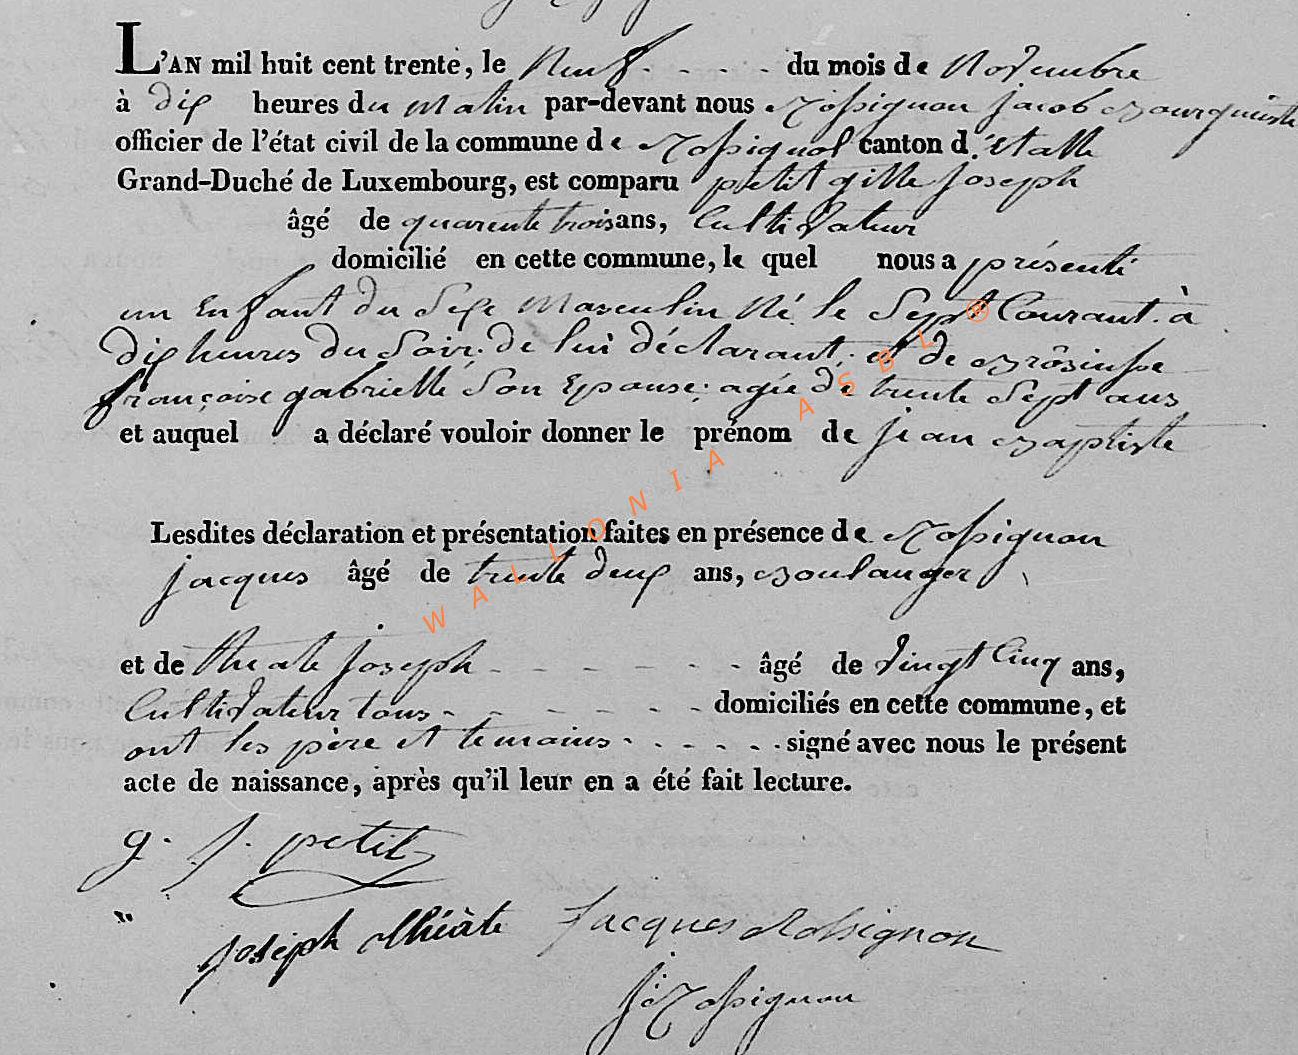 L'AN mil huit cent trente, le Neuf - - - - du mois de Novembre
à dix heures du matin par-devant nous Rossignon jacob Bourguimestre
officier de l'état civil de la commune de Rossignol canton d'étalle
Grand-Duché de Luxembourg, est comparu petit gille Joseph
âgé de quarente trois ans, Cultivateur
domicilié en cette commune, le quel nous a présenté
un Enfant du Sexe Masculin Né le Sept Courant à
dix heures du Soir, de lui déclarant, et de
françoise gabrielle Son Epouse; agée de trente Sept ans
et auquel a déclaré vouloir donner le prénom de jean Baptiste
Lesdites déclaration et présentation faites en présence de Rossignon
jacques âgé de trente deux ans, Boulanger
et de joseph - - - - - - - âgé de vingt Cinq ans,
Cultivateur tous - - - - - - - domiciliés en cette commune, et
ont les père et temoins - - - - - signé avec nous le présent
acte de naissance, après qu'il leur en a été fait lecture.
g. j. petit
joseph Jacques Rossignon
j: Rossignon
WALLONIA ASBL ®